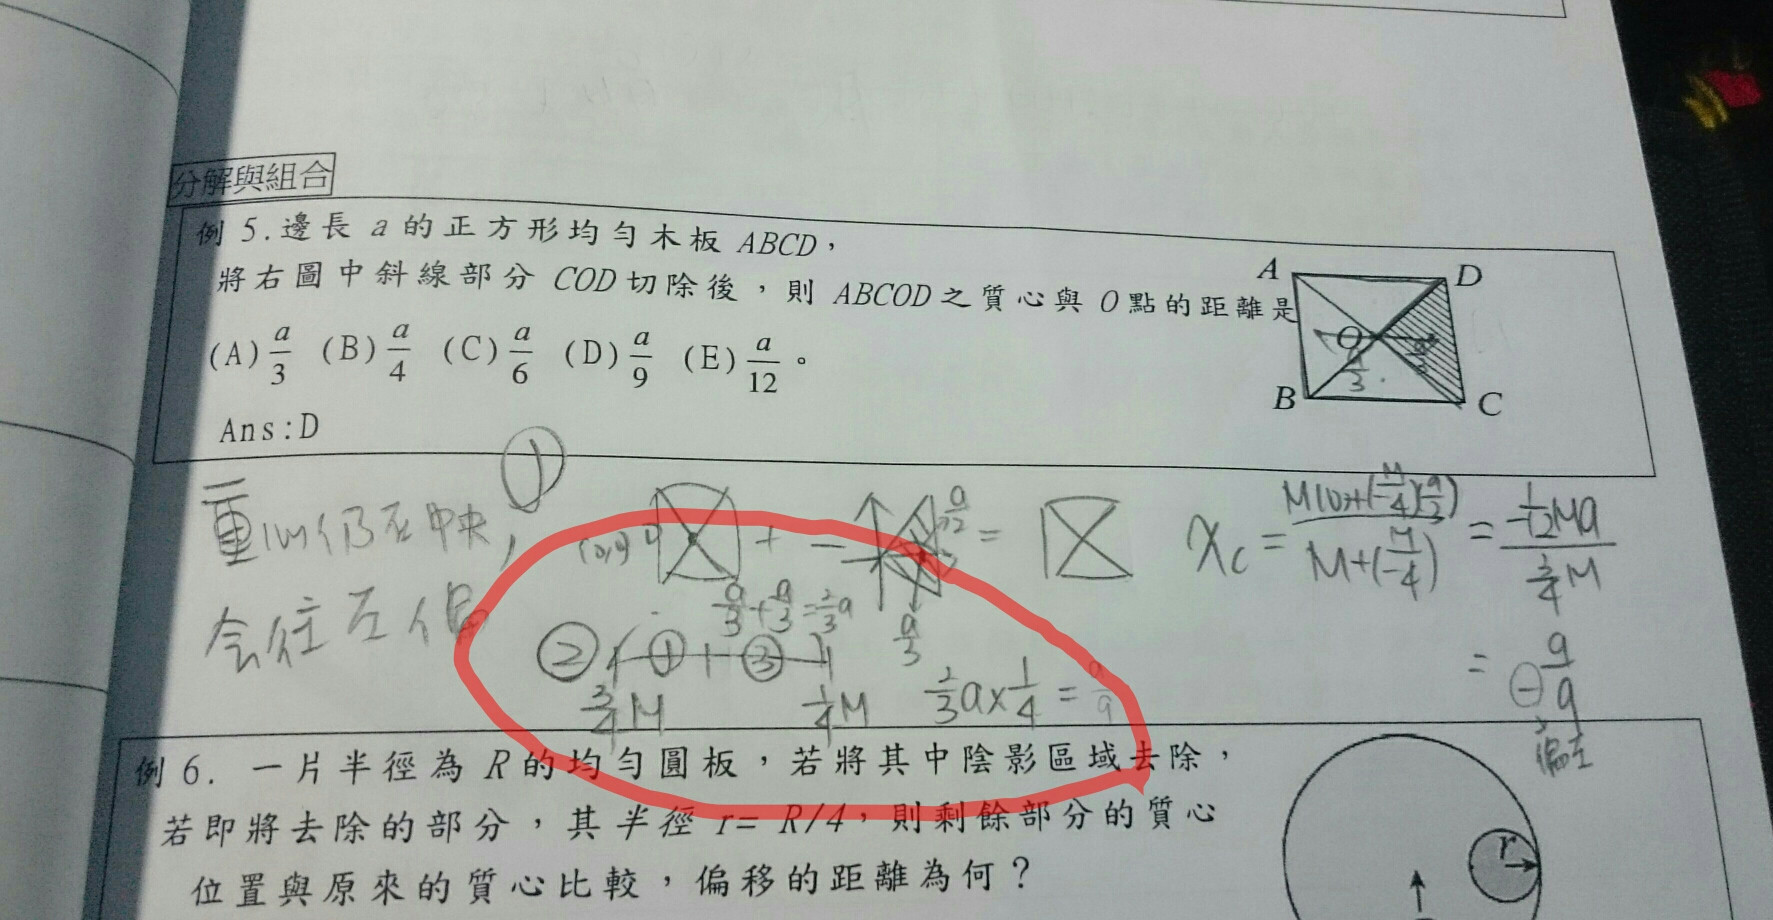 分解與組合
例 5. 邊長 a 的正方形均勻木板 ABCD，
將右圖中斜線部分 COD 切除後，則 ABCOD 之質心與 O 點的距離是
(A) a/3 (B) a/4 (C) a/6 (D) a/9 (E) a/12 。
Ans:D
A D
O
a/3 a/3
B C
① (0,0) + - a/12 = x_c = (M(0)+(-M/4)(a/3))/(M+(-M/4)) = (-1/12 Ma)/(3/4 M)
重心仍在中央，
會往左偏
a/3 + a/3 = 2/3 a
a/3
= ⊖ a/9
② ① ③
3/4 M 1/4 M 2/3 a × 1/4 = a/9
偏左
例 6. 一片半徑為 R 的均勻圓板，若將其中陰影區域去除，
若即將去除的部分，其半徑 r= R/4，則剩餘部分的質心
位置與原來的質心比較，偏移的距離為何？
r